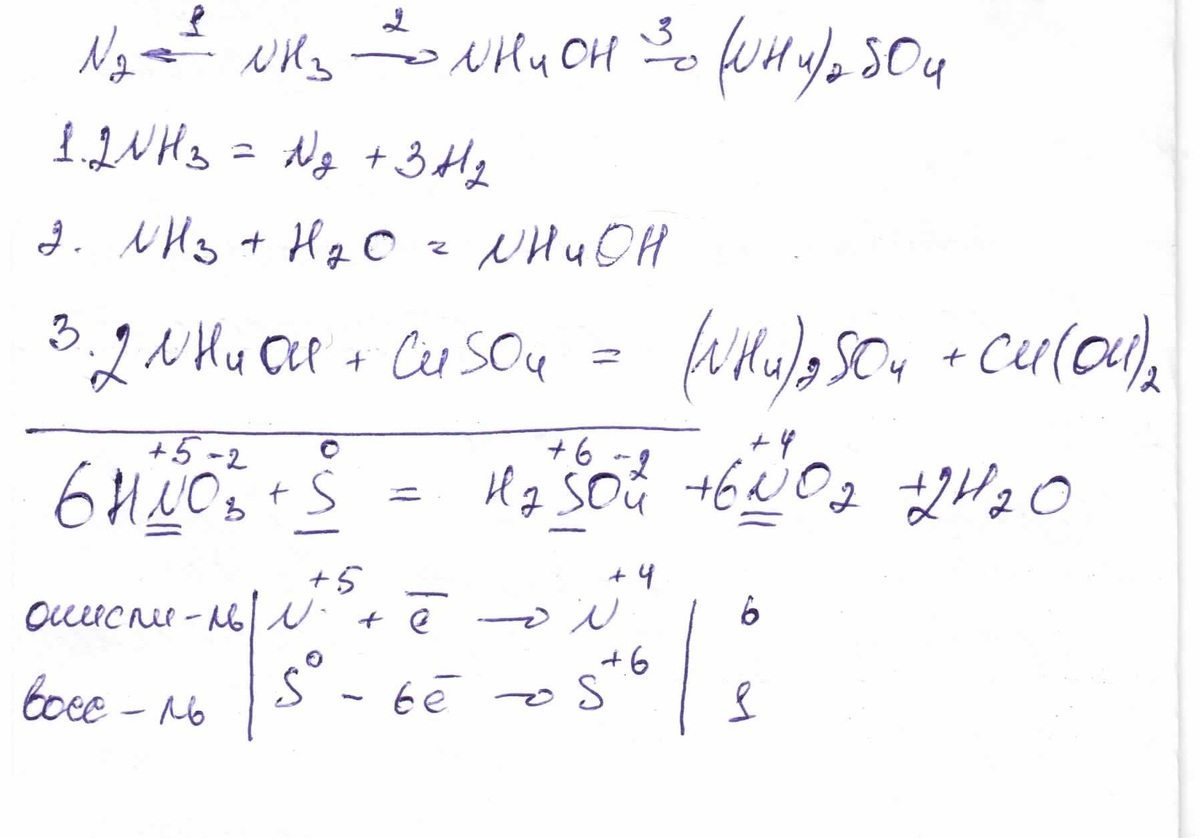 N₂ ←1— NH₃ —2→ NH₄OH —3→ (NH₄)₂SO₄
1. 2NH₃ = N₂ + 3H₂
2. NH₃ + H₂O = NH₄OH
3. 2NH₄OH + CuSO₄ = (NH₄)₂SO₄ + Cu(OH)₂
+5 -2 0 +6 -2 +4
6HNO₃ + S = H₂SO₄ + 6NO₂ + 2H₂O
окисли-ль | N⁺⁵ + ē → N⁺⁴ | 6
восс-ль | S⁰ - 6ē → S⁺⁶ | 1